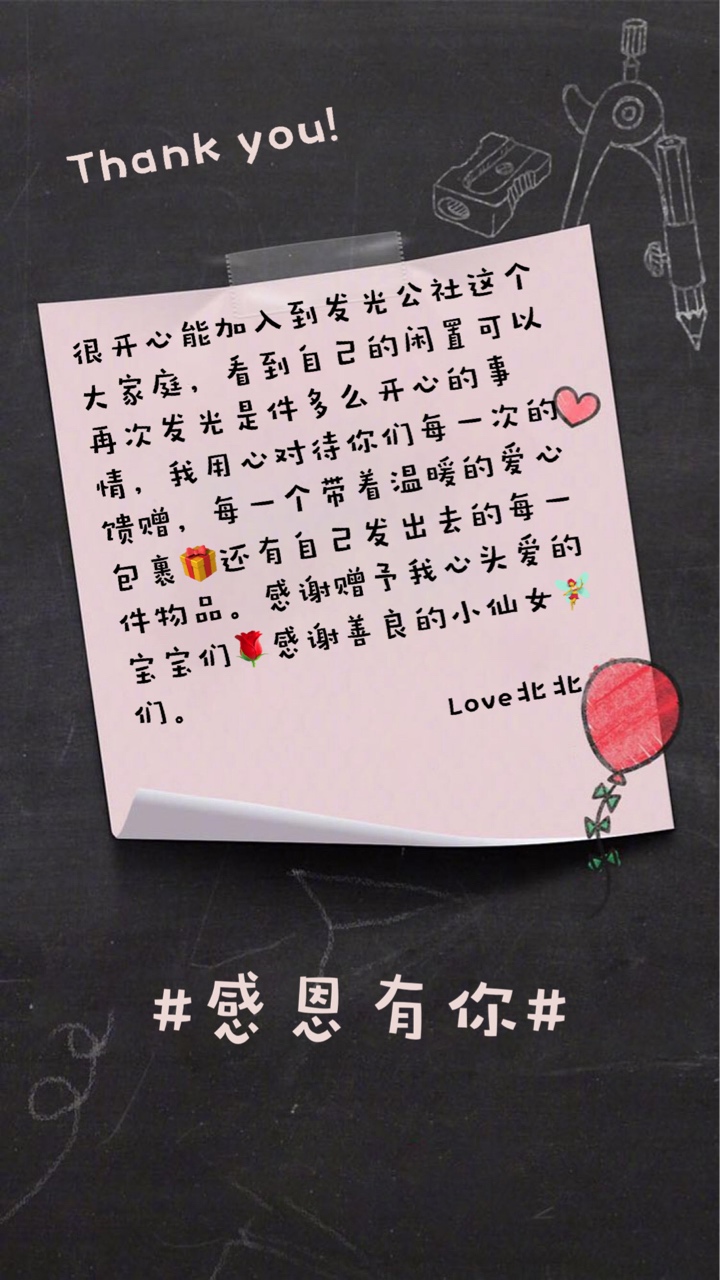 Thank you!
很开心能加入到发光公社这个
大家庭，看到自己的闲置可以
再次发光是件多么开心的事
情，我用心对待你们每一次的
馈赠，每一个带着温暖的爱心
包裹🎁还有自己发出去的每一
件物品。感谢赠予我心头爱的
宝宝们🌹感谢善良的小仙女🧚
们。
Love北北
#感恩有你#